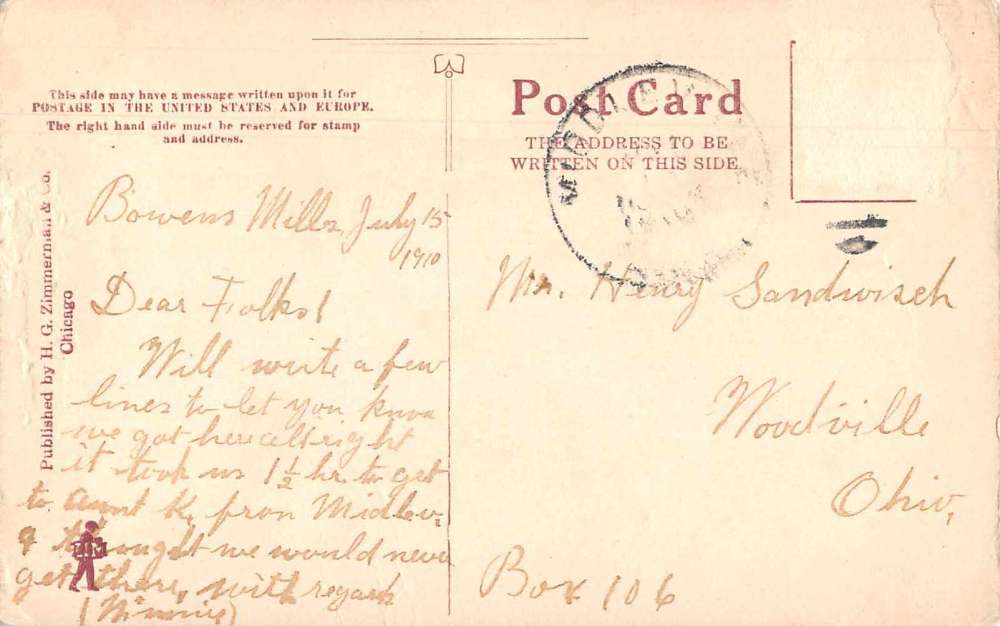 This side may have a message written upon it for
POSTAGE IN THE UNITED STATES AND EUROPE.
The right hand side must be reserved for stamp
and address.
Post Card
THE ADDRESS TO BE
WRITTEN ON THIS SIDE.
MIDDLEV
Published by H. G. Zimmerman & Co.
Chicago
Bowens Mills, July 15
1910
Dear Folks!
Will write a few
lines to let you know
we got here allright
it took us 1½ hr. to get
to aunt K, from Midlev.
I thought we would never
get there, with regards
(Minnie)
Mr. Henry Sandwisch
Woodville
Ohio,
Box 106